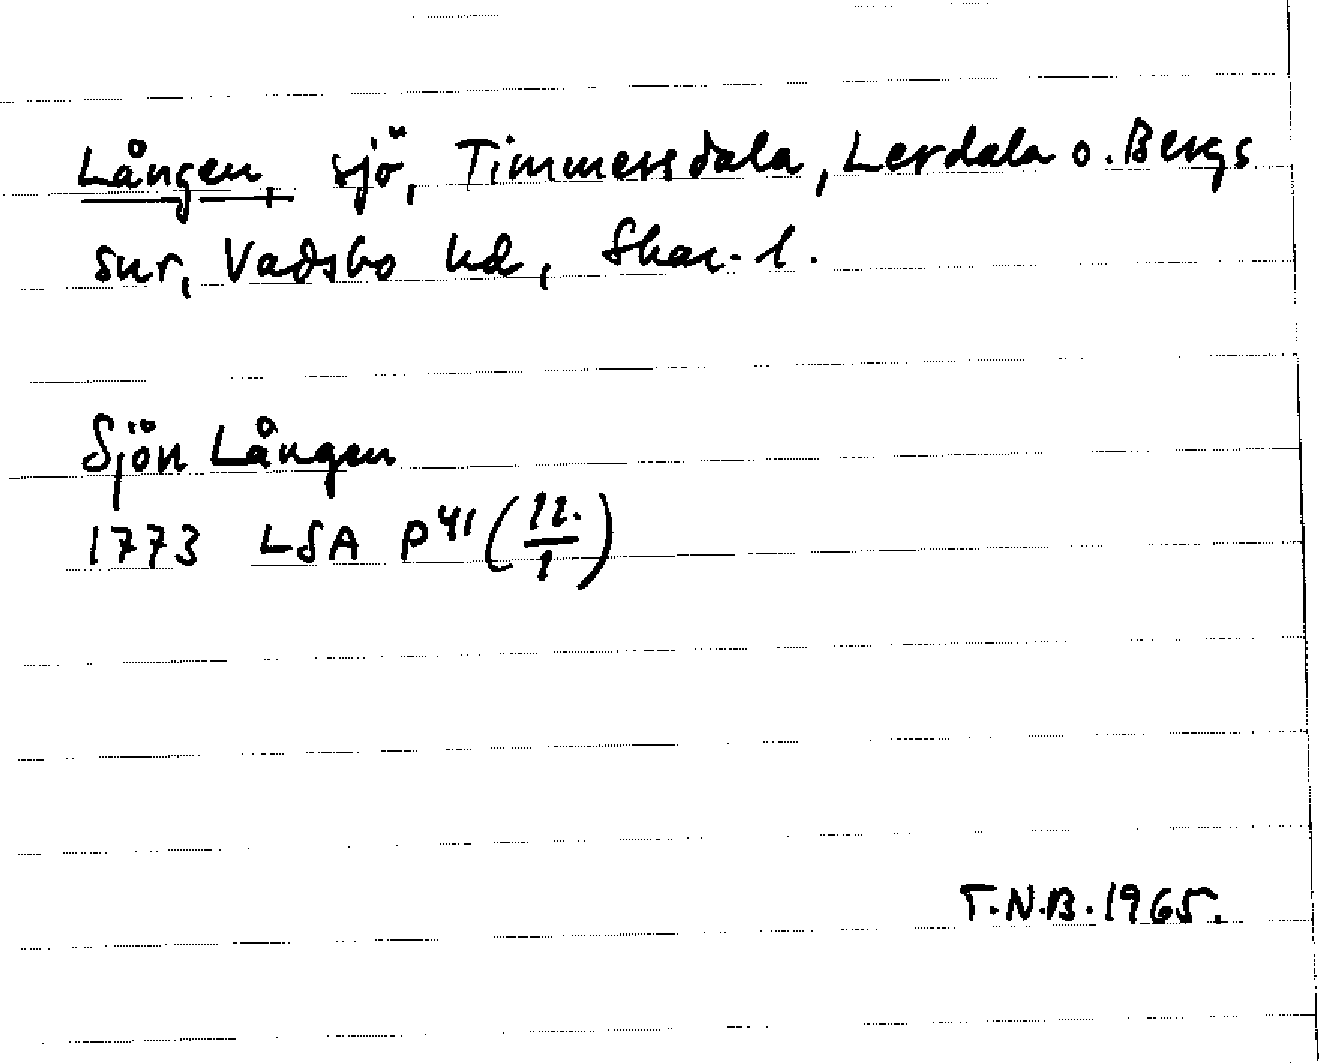 Lången, sjö, Timmersdala, Lerdala o. Bergs
snr, Vadsbo hd, Skar. l.
Sjön Lången
1773 LSA P41 (12./1)
T.N.B. 1965.